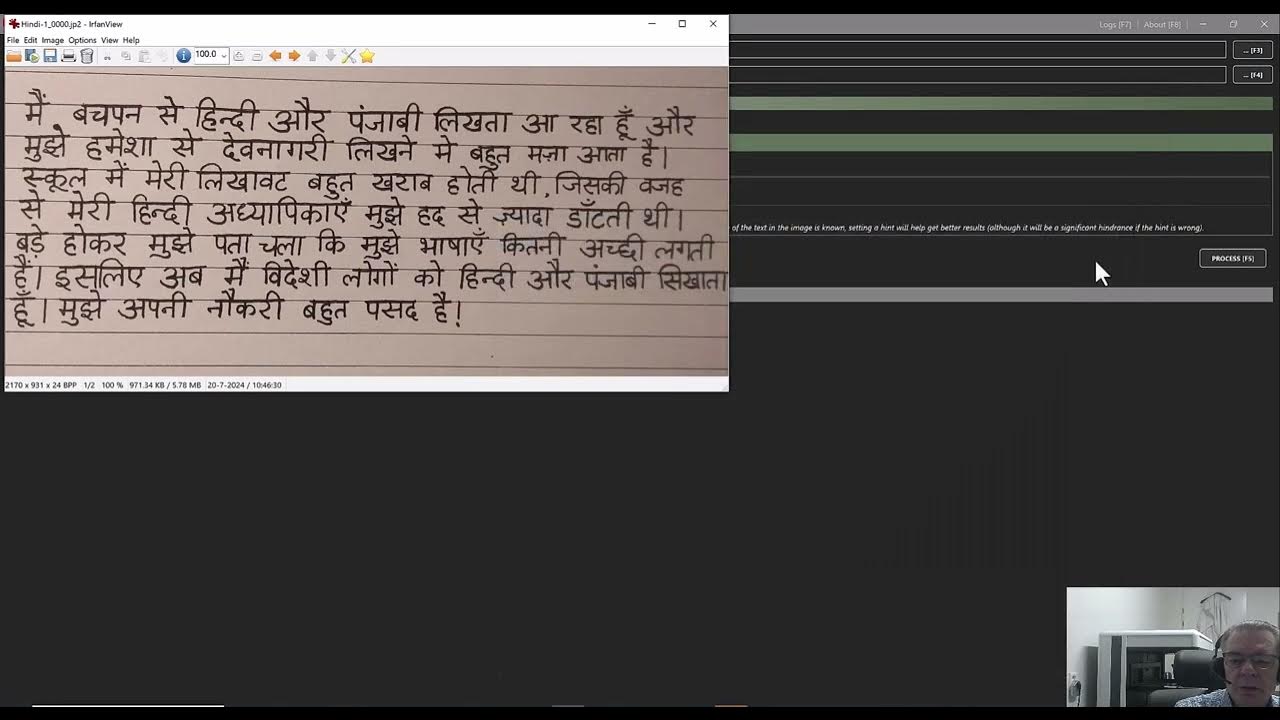 Hindi-1_0000.jp2 - IrfanView
Logs [F7] | About [F8]
File Edit Image Options View Help
100.0
... [F3]
... [F4]
मैं बचपन से हिन्दी और पंजाबी लिखता आ रहा हूँ और
मुझे हमेशा से देवनागरी लिखने मे बहुत मज़ा आता है।
स्कूल में मेरी लिखावट बहुत खराब होती थी, जिसकी वजह
से मेरी हिन्दी अध्यापिकाएँ मुझे हद से ज़्यादा डाँटती थी।
बड़े होकर मुझे पता चला कि मुझे भाषाएँ कितनी अच्छी लगती
हैं। इसलिए अब मैं विदेशी लोगों को हिन्दी और पंजाबी सिखाता
हूँ। मुझे अपनी नौकरी बहुत पसद है!
of the text in the image is known, setting a hint will help get better results (although it will be a significant hindrance if the hint is wrong).
PROCESS [F5]
2170 x 931 x 24 BPP 1/2 100 % 971.34 KB / 5.78 MB 20-7-2024 / 10:46:30